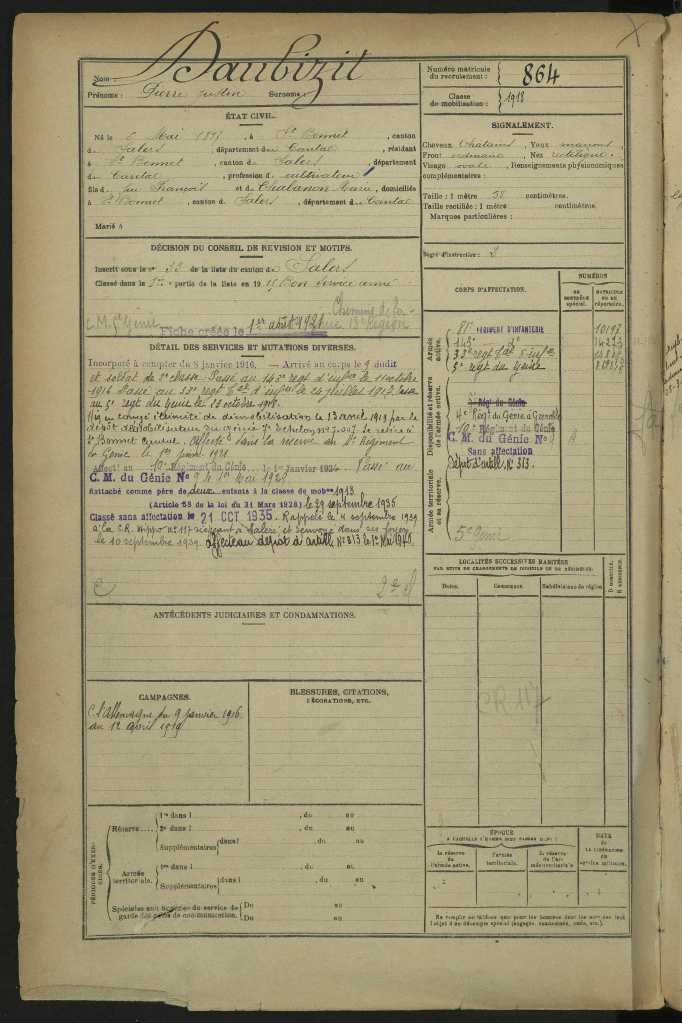 Nom : Daubizit
Prénoms : Pierre Justin Surnoms :
Numéro matricule du recrutement : 864
Classe de mobilisation : 1918
ÉTAT CIVIL.
Né le 6 Mai 1897, à St Bonnet, canton
de Salers, département du Cantal, résidant
à St Bonnet, canton de Salers, département
du Cantal, profession de cultivateur
fils de feu François et de Chabanon Marie, domiciliés
à St Bonnet, canton de Salers, département du Cantal
Marié à
SIGNALEMENT.
Cheveux Chatains, Yeux marrons
Front ordinaire, Nez rectiligne
Visage ovale, Renseignements physionomiques
complémentaires :
Taille : 1 mètre 58 centimètres.
Taille rectifiée : 1 mètre centimètres.
Marques particulières :
Degré d'instruction : 3
DÉCISION DU CONSEIL DE REVISION ET MOTIFS.
Inscrit sous le n° 33 de la liste du canton de Salers
Classé dans la partie de la liste en 19 Bon service armé
C. M. Génie
Chemins de fer
Fiche créée le 1er août 1921
13e Région
DÉTAIL DES SERVICES ET MUTATIONS DIVERSES.
Incorporé à compter du 8 janvier 1916. — Arrivé au corps le 9 dudit
et soldat de 2e classe. Passé au 143e régt d'infie le 1er octobre
1916. Passé au 33e régt d'infie le 24 juillet 1917. Passé
au 5e régt du génie le 22 octobre 1918.
Mis en congé illimité de démobilisation le 13 avril 1919 par le
dépôt démobilisateur du Génie Echelon N° Se retire à
St Bonnet Cantal. Affecté dans la réserve au Régiment
de Génie le 1er juin 1921
Affecté au 10e Régiment du Génie le 1er janvier 1924 Passé au
C. M. du Génie N° 9 le 1er Mai 1928
Rattaché comme père de deux enfants à la classe de mobon 1913
(Article 58 de la loi du 31 Mars 1928) le 29 septembre 1935
Classé sans affectation le 21 OCT 1935. Rappelé le 4 septembre 1939
à la C.R. Rippo N° 117 siégeant à Salers et renvoyé dans ses foyers
le 10 septembre 1939. Affecté au dépôt d'artill N° 313 le 1er Mai 1940
CORPS D'AFFECTATION.
NUMÉROS
AU CONTRÔLE SPÉCIAL.
MATRICULE OU AU RÉPERTOIRE.
Armée active.
RÉGIMENT D'INFANTERIE 10197
143e do
33e régt
5e régt du génie
Disponibilité et réserve de l'armée active.
Régt du Génie
4e Régt du Génie à Grenoble
10e Régiment du Génie
C. M. du Génie N° 9
Sans affectation
Dépôt d'artill. N° 313.
Armée territoriale et sa réserve.
5e Génie
LOCALITÉS SUCCESSIVES HABITÉES
PAR SUITE DE CHANGEMENTS DE DOMICILE OU DE RÉSIDENCE.
Dates. Communes. Subdivisions de région. D DOMICILE. R RÉSIDENCE.
CR 117
ANTÉCÉDENTS JUDICIAIRES ET CONDAMNATIONS.
CAMPAGNES.
C. l'Allemagne du 9 janvier 1916
au 12 avril 1919
BLESSURES, CITATIONS,
DÉCORATIONS, ETC.
PÉRIODES D'EXERCICES.
Réserve
1re dans l , du au
2e dans l , du au
Supplémentaires dans l , du au
Armée territoriale.
1re dans l , du au
Supplémentaires dans l , du au
Spéciales aux hommes du service de
garde des voies de communication.
Du au
Du au
ÉPOQUE
À LAQUELLE L'HOMME DOIT PASSER DANS :
la réserve de l'armée active.
l'armée territoriale.
la réserve de l'armée territoriale
DATE
DE LA LIBÉRATION
du service militaire.
Ne remplir ce tableau que pour les hommes dont les services font
l'objet d'un décompte spécial (engagés, condamnés, omis, etc.).